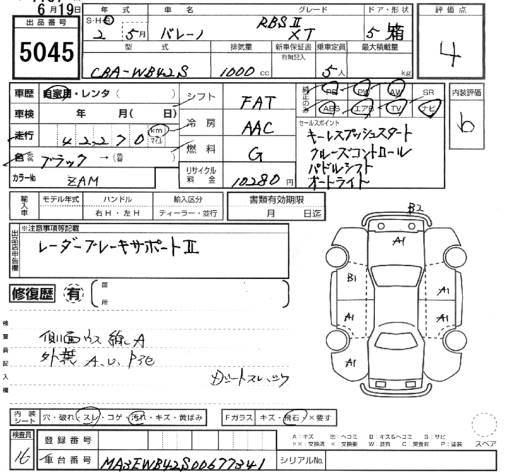 6月19日
出品番号
5045
年式 車名 グレード ドア・形状
S・H・R 2年 5月 バレーノ RBSⅡ XT 5 箱
型式 排気量 新車保証書 乗車定員 最大積載量
有無記入
CBA-WB42S 1000cc 5人 kg
評価点
4
車歴 自家用・レンタ( )
車検 年 月( 日)
走行 42270 km マイル
色 ブラック →( )
カラーNo ZAM
シフト FAT
冷房 AAC
燃料 G
リサイクル料金 10280円
純正の装備 PS PW AW SR
ABS エアB TV ナビ
セールスポイント
キーレスプッシュスタート
クルーズコントロール
パドルシフト
オートライト
内装評価
b
輸入車 モデル年式 ハンドル 輸入区分
右H・左H ディーラー・並行
書類有効期限
月 日迄
出品店申告欄
※注意事項等記載
レーダーブレーキサポートⅡ
修復歴 有 箇所
検査員記入欄
側面ウス線A
外装 A.U.
Dシートスレ
B2
A1
B1 A1
A1 A1
A1
内装シート 穴・破れ・スレ・コゲ・汚れ・キズ・黄ばみ
Fガラス キズ・飛石・×要す
スペア
A:キズ U:ヘコミ B:キズ&ヘコミ S:サビ
検査員
16
登録番号
車台番号 MA3EWB42S00677341
シリアルNo.